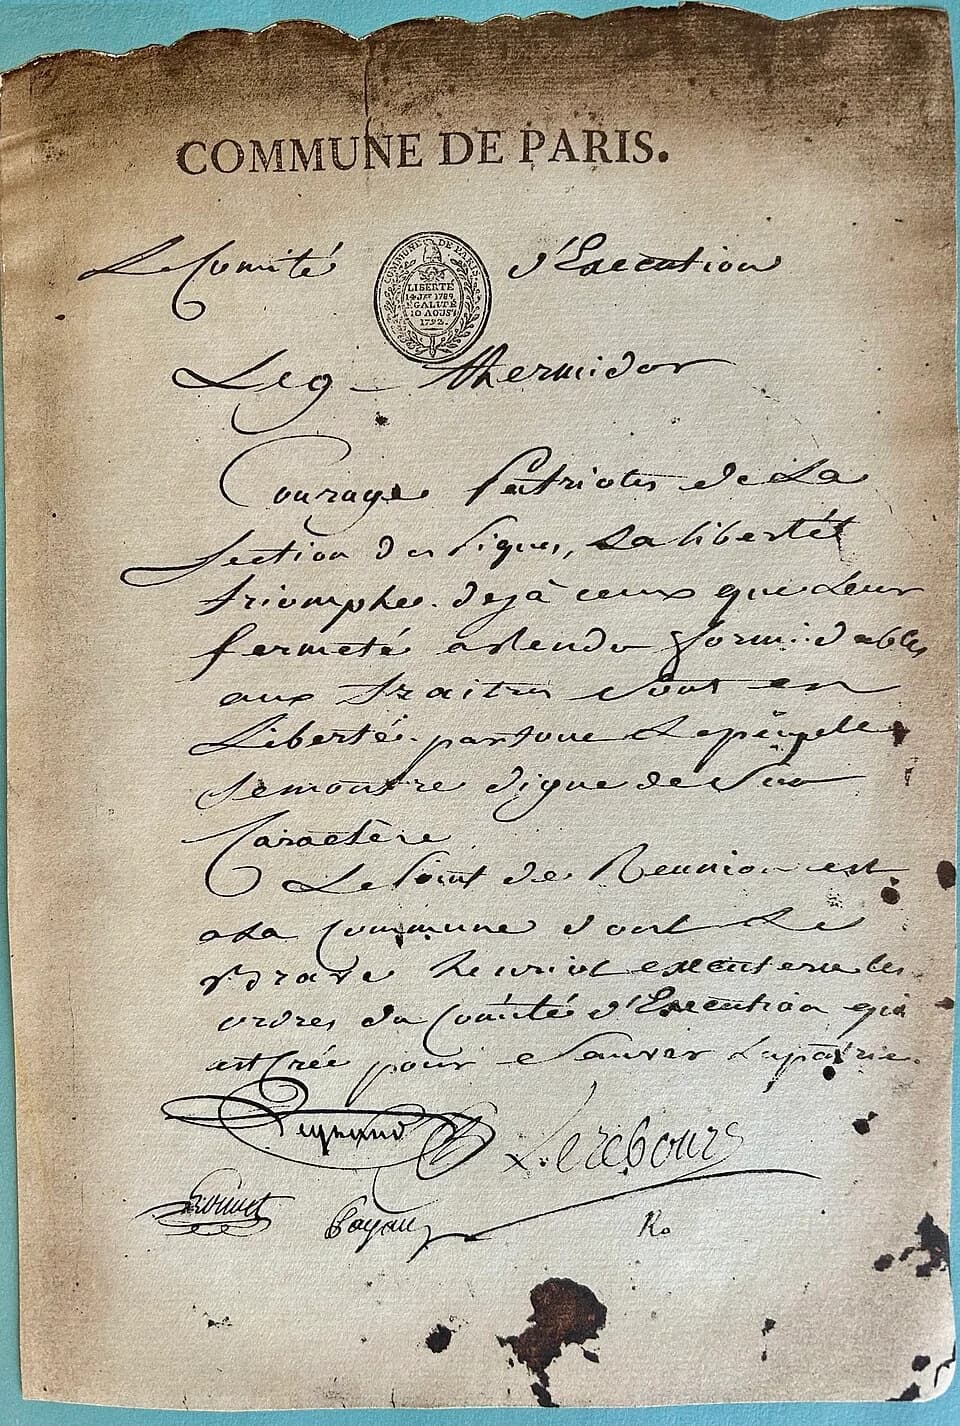 COMMUNE DE PARIS.
Le Comité d'Execution
COMMUNE DE PARIS
LIBERTÉ
14 JET 1789
EGALITÉ
10 AOUST
1792.
Le 9 - thermidor
Courage Patriotes de La
Section des Piques, La liberté
triomphe. dejà ceux que Leur
fermeté a Rendu formidables
aux traitres Sont en
Liberté. partout Le peuple
Se montre digne de Son
Caractère
Le Point de Reunion est
a La Commune dont Le
Brave henriot executera les
ordres du Comité d'Execution qui
est Créé pour Sauver La patrie.
Legrand Lerebours
Louvet Payan Ro